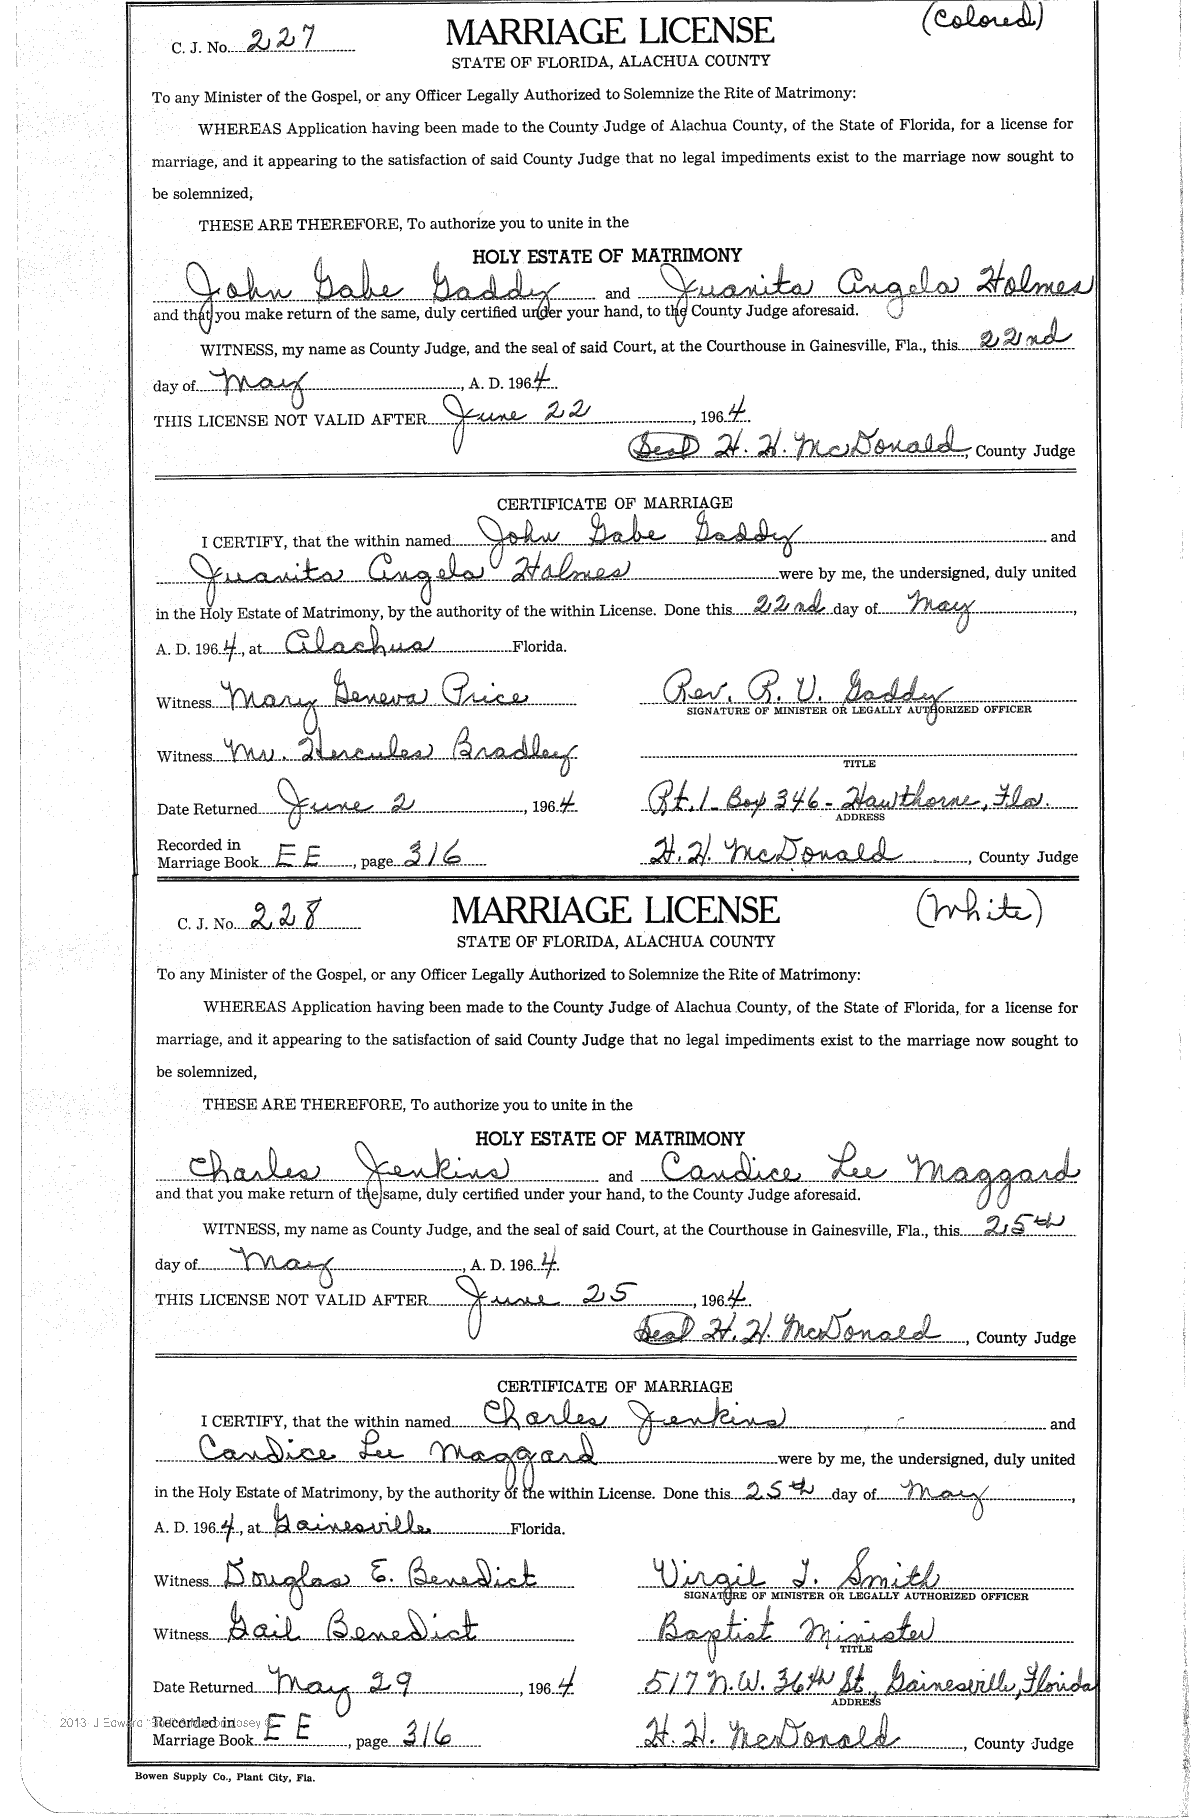 (Colored)
C. J. No. 227 MARRIAGE LICENSE
STATE OF FLORIDA, ALACHUA COUNTY
To any Minister of the Gospel, or any Officer Legally Authorized to Solemnize the Rite of Matrimony:
WHEREAS Application having been made to the County Judge of Alachua County, of the State of Florida, for a license for
marriage, and it appearing to the satisfaction of said County Judge that no legal impediments exist to the marriage now sought to
be solemnized,
THESE ARE THEREFORE, To authorize you to unite in the
HOLY ESTATE OF MATRIMONY
John Gabe Gaddy and Juanita Angela Holmes
and that you make return of the same, duly certified under your hand, to the County Judge aforesaid.
WITNESS, my name as County Judge, and the seal of said Court, at the Courthouse in Gainesville, Fla., this 22nd
day of May, A. D. 1964.
THIS LICENSE NOT VALID AFTER June 22, 1964.
Seal H. H. McDonald, County Judge
CERTIFICATE OF MARRIAGE
I CERTIFY, that the within named John Gabe Gaddy and
Juanita Angela Holmes were by me, the undersigned, duly united
in the Holy Estate of Matrimony, by the authority of the within License. Done this 22nd day of May,
A. D. 1964, at Alachua Florida.
Witness Mary Geneva Price Rev. R. V. Gaddy
SIGNATURE OF MINISTER OR LEGALLY AUTHORIZED OFFICER
Witness Mr. Hercules Bradley
TITLE
Date Returned June 2, 1964. Rt. 1 - Box 346 - Hawthorne, Fla.
ADDRESS
Recorded in
Marriage Book EE, page 316 H. H. McDonald, County Judge
C. J. No. 228 MARRIAGE LICENSE (White)
STATE OF FLORIDA, ALACHUA COUNTY
To any Minister of the Gospel, or any Officer Legally Authorized to Solemnize the Rite of Matrimony:
WHEREAS Application having been made to the County Judge of Alachua County, of the State of Florida, for a license for
marriage, and it appearing to the satisfaction of said County Judge that no legal impediments exist to the marriage now sought to
be solemnized,
THESE ARE THEREFORE, To authorize you to unite in the
HOLY ESTATE OF MATRIMONY
Charles Jenkins and Candice Lee Maggard
and that you make return of the same, duly certified under your hand, to the County Judge aforesaid.
WITNESS, my name as County Judge, and the seal of said Court, at the Courthouse in Gainesville, Fla., this 25th
day of May, A. D. 1964.
THIS LICENSE NOT VALID AFTER June 25, 1964.
Seal H. H. McDonald, County Judge
CERTIFICATE OF MARRIAGE
I CERTIFY, that the within named Charles Jenkins and
Candice Lee Maggard were by me, the undersigned, duly united
in the Holy Estate of Matrimony, by the authority of the within License. Done this 25th day of May,
A. D. 1964, at Gainesville Florida.
Witness Douglas E. Benedict Virgil I. Smith
SIGNATURE OF MINISTER OR LEGALLY AUTHORIZED OFFICER
Witness Gail Benedict Baptist Minister
TITLE
Date Returned May 29, 1964 517 N.W. 36th St., Gainesville, Florida
ADDRESS
2013 J Edward
Recorded in
Marriage Book EE, page 316 H. H. McDonald, County Judge
Bowen Supply Co., Plant City, Fla.